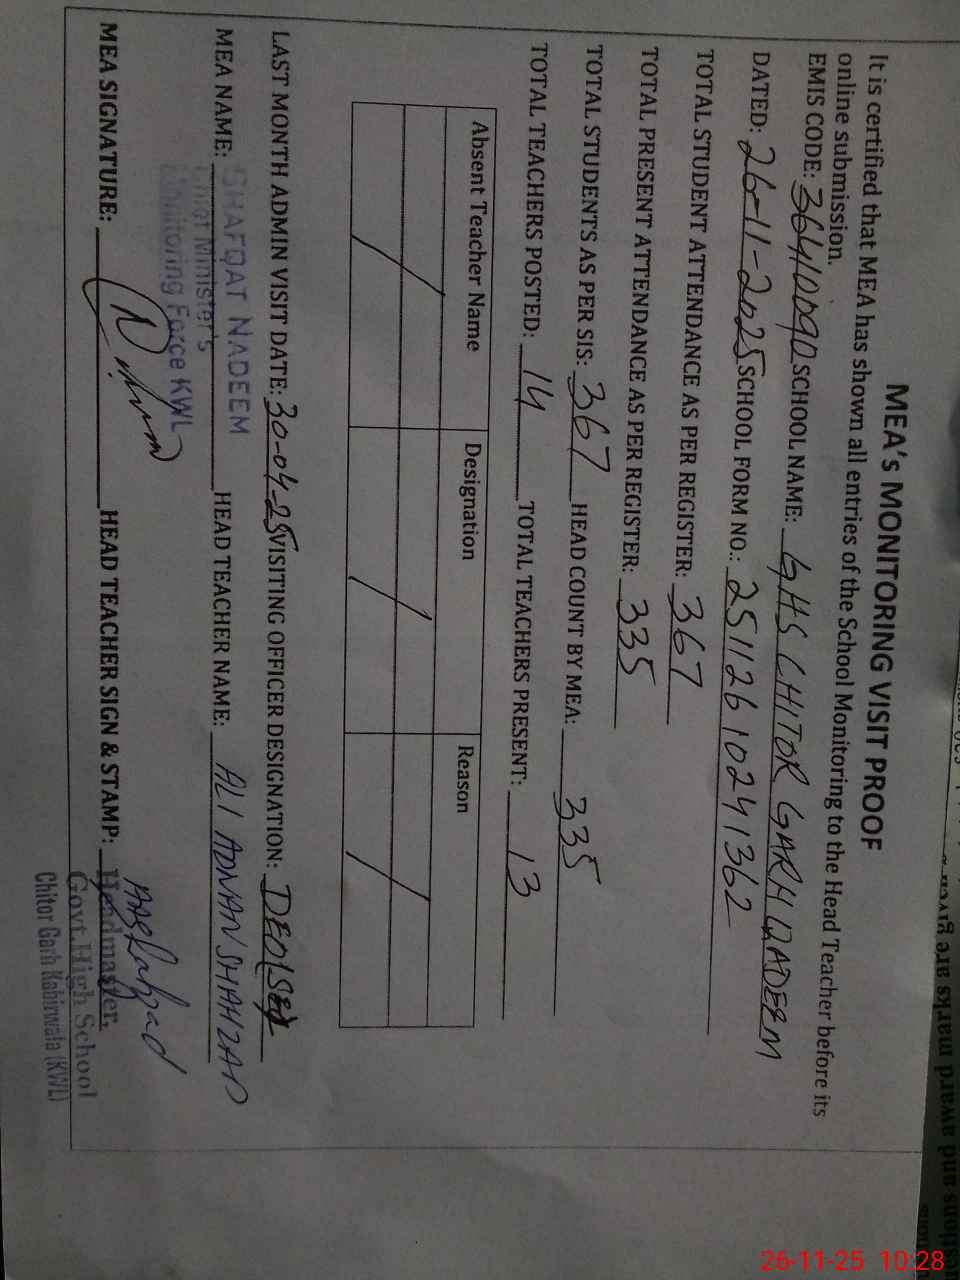 MEA's MONITORING VISIT PROOF
It is certified that MEA has shown all entries of the School Monitoring to the Head Teacher before its
online submission.
EMIS CODE: 36410090 SCHOOL NAME: GHS CHITOR GARH QADEEM
DATED: 26-11-2025 SCHOOL FORM NO.: 251126 10241362
TOTAL STUDENT ATTENDANCE AS PER REGISTER: 367
TOTAL PRESENT ATTENDANCE AS PER REGISTER: 335
TOTAL STUDENTS AS PER SIS: 367 HEAD COUNT BY MEA: 335
TOTAL TEACHERS POSTED: 14 TOTAL TEACHERS PRESENT: 13
Absent Teacher Name Designation Reason
LAST MONTH ADMIN VISIT DATE: 30-04-25 VISITING OFFICER DESIGNATION: DEO(SE)
MEA NAME: SHAFQAT NADEEM HEAD TEACHER NAME: ALI ADNAN SHAHZAD
Chief Minister's
Monitoring Force KWL
MEA SIGNATURE: HEAD TEACHER SIGN & STAMP: Headmaster,
Govt. High School
Chitor Garh Kabirwala (KWL)
ons and award marks are given
26-11-25 10:28